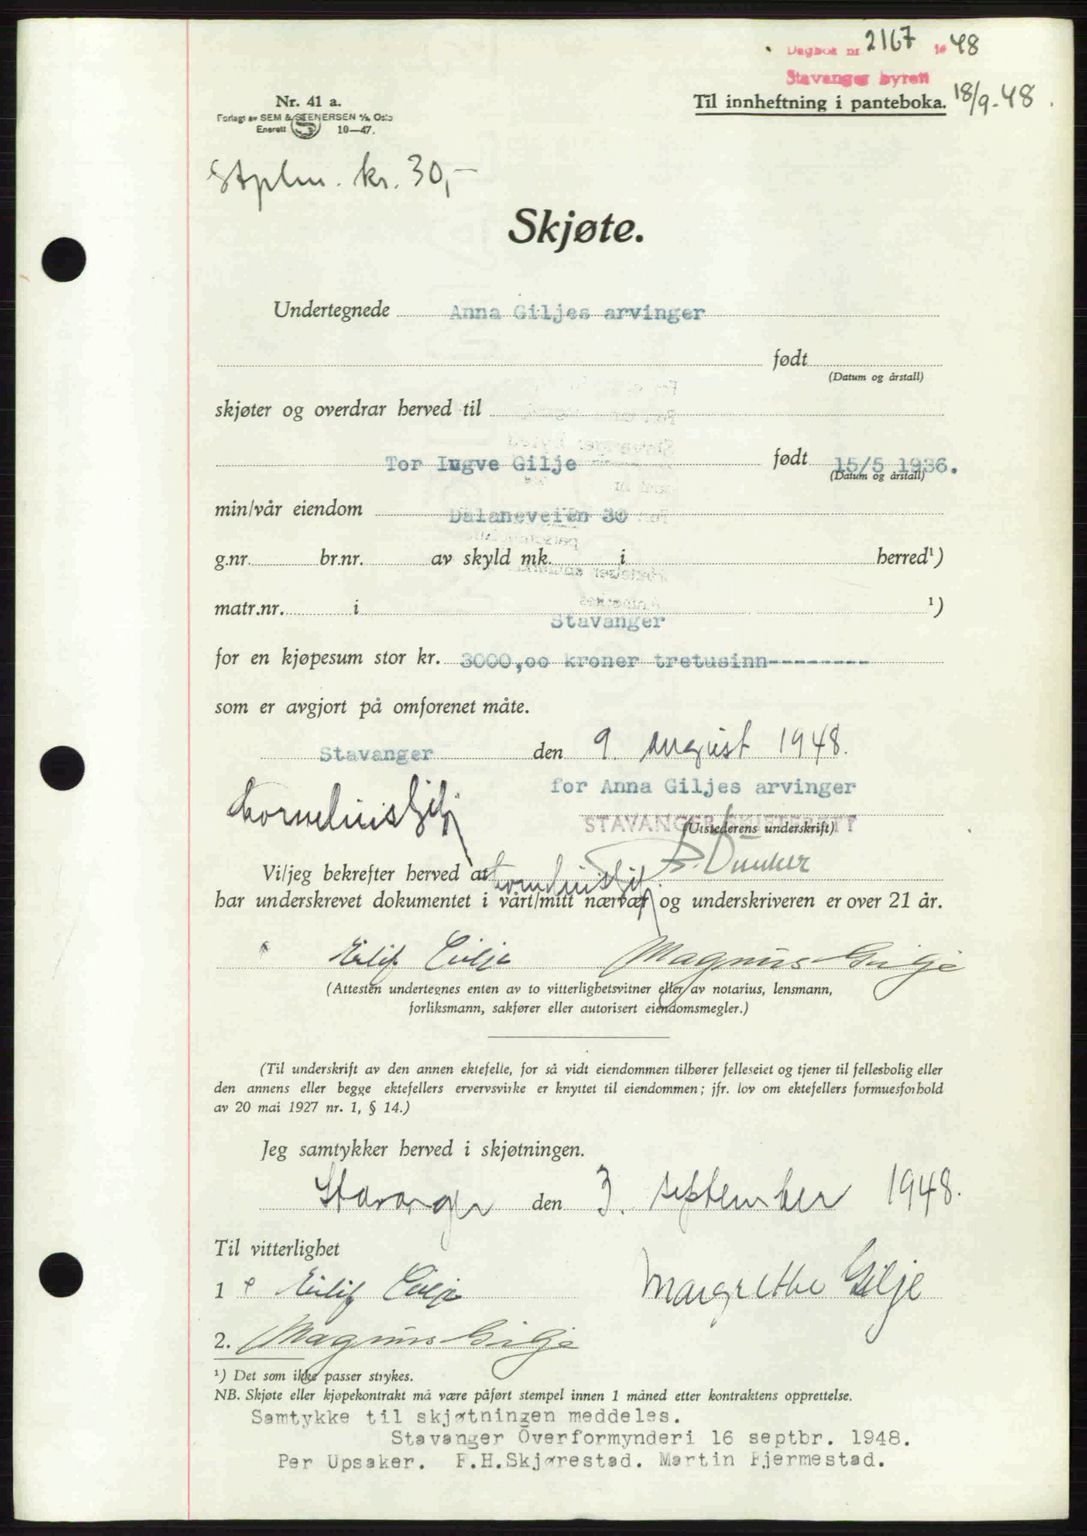 Dagbok nr 2167 1948
Stavanger byrett
Til innheftning i panteboka. 18/9-48
Nr. 41 a.
Forlagt av SEM & STENERSEN A/S, Oslo
Enerett 10—47.
Stplm. kr. 30,-
Skjøte.
Undertegnede Anna Giljes arvinger
født
(Datum og årstall)
skjøter og overdrar herved til
Tor Ingve Gilje født 15/5 1936.
(Datum og årstall)
min/vår eiendom Dalaneveien 30
g.nr. br.nr. av skyld mk. i herred¹)
matr.nr. i ¹)
Stavanger
for en kjøpesum stor kr. 3000,oo kroner tretusinn---------
som er avgjort på omforenet måte.
Stavanger den 9. august 1948.
for Anna Giljes arvinger
Kornelius Gilje
STAVANGER SKIFTERETT
(Utstederens underskrift)
Dunker
Vi/jeg bekrefter herved at Kornelius Gilje
har underskrevet dokumentet i vårt/mitt nærvær og underskriveren er over 21 år.
Eilif Gilje Magnus Gilje
(Attesten undertegnes enten av to vitterlighetsvitner eller av notarius, lensmann,
forliksmann, sakfører eller autorisert eiendomsmegler.)
(Til underskrift av den annen ektefelle, for så vidt eiendommen tilhører felleseiet og tjener til fellesbolig eller
den annens eller begge ektefellers ervervsvirke er knyttet til eiendommen; jfr. lov om ektefellers formuesforhold
av 20 mai 1927 nr. 1, § 14.)
Jeg samtykker herved i skjøtningen.
Stavanger den 3. september 1948.
Til vitterlighet
1 Eilif Gilje Margrethe Gilje
2. Magnus Gilje
¹) Det som ikke passer strykes.
NB. Skjøte eller kjøpekontrakt må være påført stempel innen 1 måned etter kontraktens opprettelse.
Samtykke til skjøtningen meddeles.
Stavanger Overformynderi 16 septbr. 1948.
Per Upsaker. F.H.Skjørestad. Martin Fjermestad.